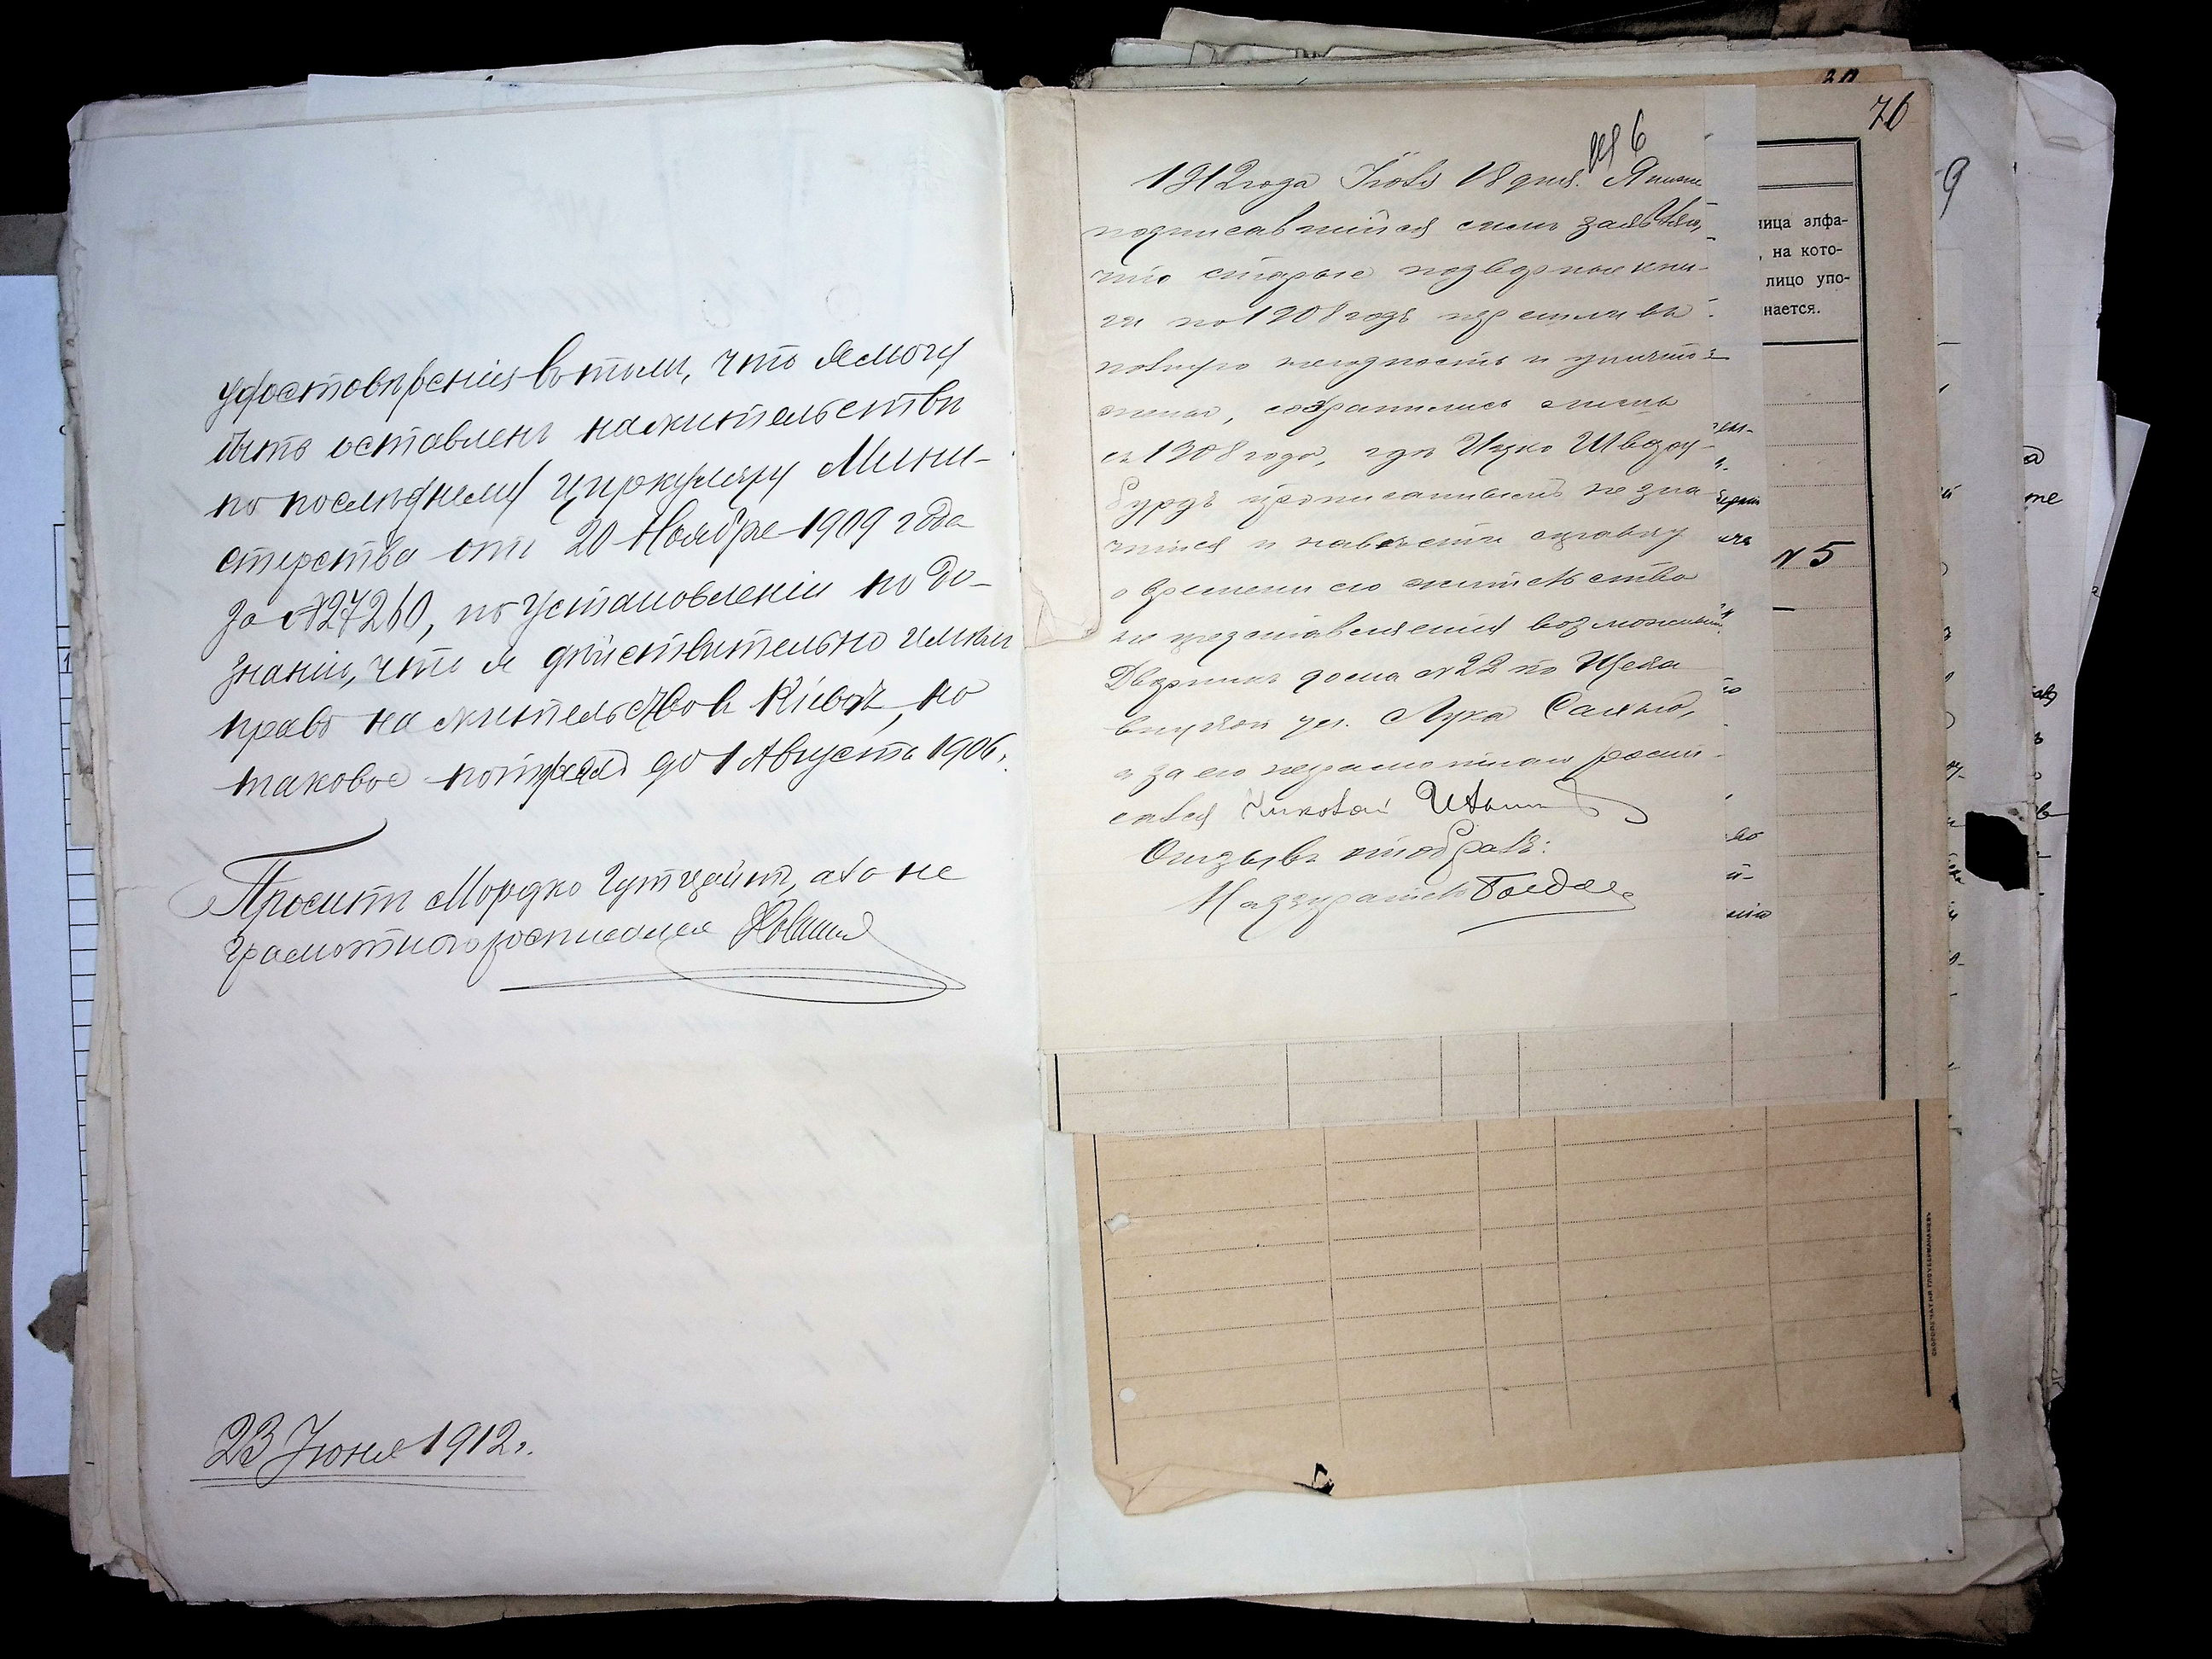 удостовѣренія въ томъ, что я могу
быть оставленъ на жительствѣ
по послѣднему циркуляру Мини-
стерства отъ 20 Ноября 1909 года
за №27260, по установленіи по до-
знанію, что я дѣйствительно имѣлъ
право на жительство в Кіевѣ, но
таковое потерял до 1 Августа 1906г.
Проситъ Мордко Гутцайтъ, а по не
грамотного росписался
23 Іюня 1912г.
76
№ 6
1912 года Іюля 18 дня. Я ниже
подписавшійся симъ заявляю,
что старые подворные кни-
ги по 1908 годъ пришли въ
полную негодность и уничто-
жены, сохранились лишь
съ 1908 года, гдѣ Ицко Швец
бурдъ прописаннымъ не зна
чится и навести справку
о времени его жительства
не представляется возможнымъ.
Дворникъ дома №22 по Щека
вицкой ул. Лука
а за его неграмотнаго роспи-
сался Николай
Отзывъ отобралъ:
Надзиратель
ница алфа-
, на кото-
лицо упо-
нается.
№5